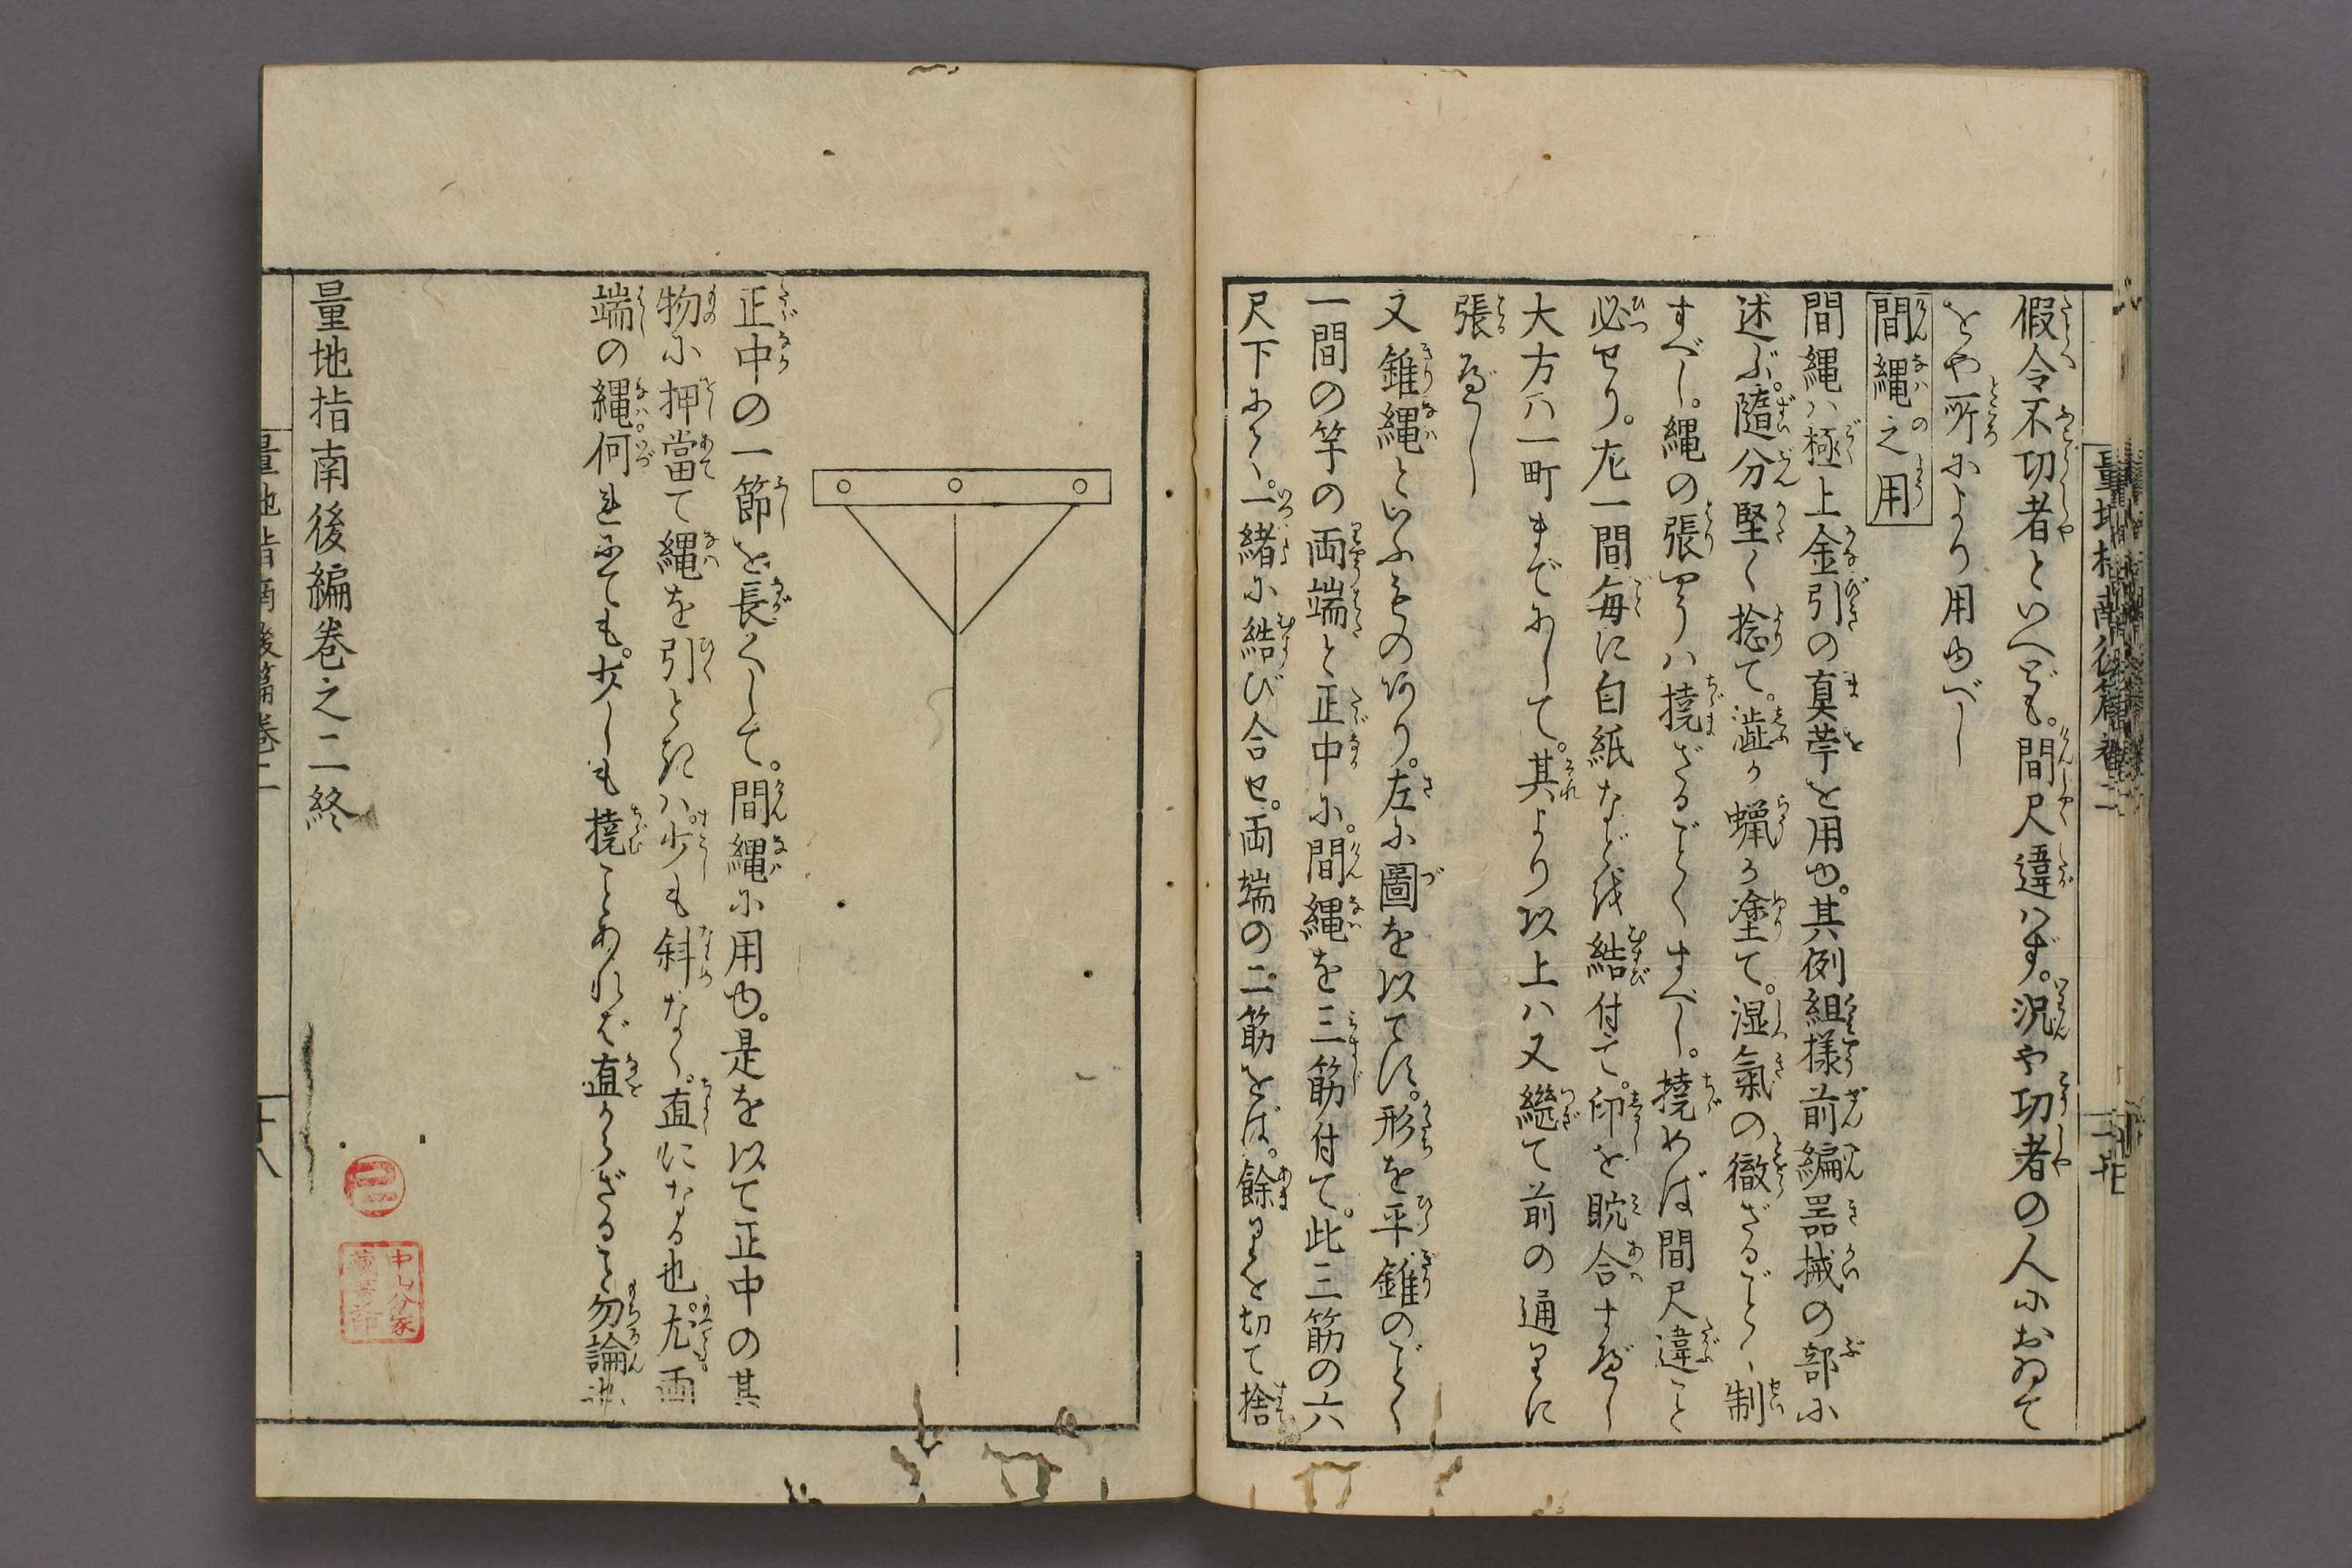 假令不切者といへども。間尺違ハず。况や切者の人におゐて
をや所により用ゆべし
間縄之用
間縄ハ極上金引の真苧を用ゆ。其例組様前編噐械の部に
述ぶ。隨分堅く捻て。澁か蝋か塗て。湿氣の徹ざるごとく、制
すべし。縄の張やうハ撓ざるごとくすべし。撓めば間尺違こと
必せり。尤一間毎に白紙などを結付て。印を眈合すべし
大方ハ一町までにして。其より以上ハ又繼て前の通りに
張べし
又錐縄といふもの有り。左に圖を以て示。形を平錐のごとく
一間の竿の両端と正中に。間縄を三筋付て。此三筋の六
尺下にて、一緒に結び合せ。両端の二筋をば。餘りを切て捨
正中の一節を長くして。間縄に用ゆ。是を以て正中の其
物に押當て縄を引ときハ。少も斜なく。直になる也。尤両
端の縄。何れにても。少しも撓ことあれば直からざること勿論也
量地指南後編巻之二終
量地指南後篇巻二
十八
中山分家
蔵書之印